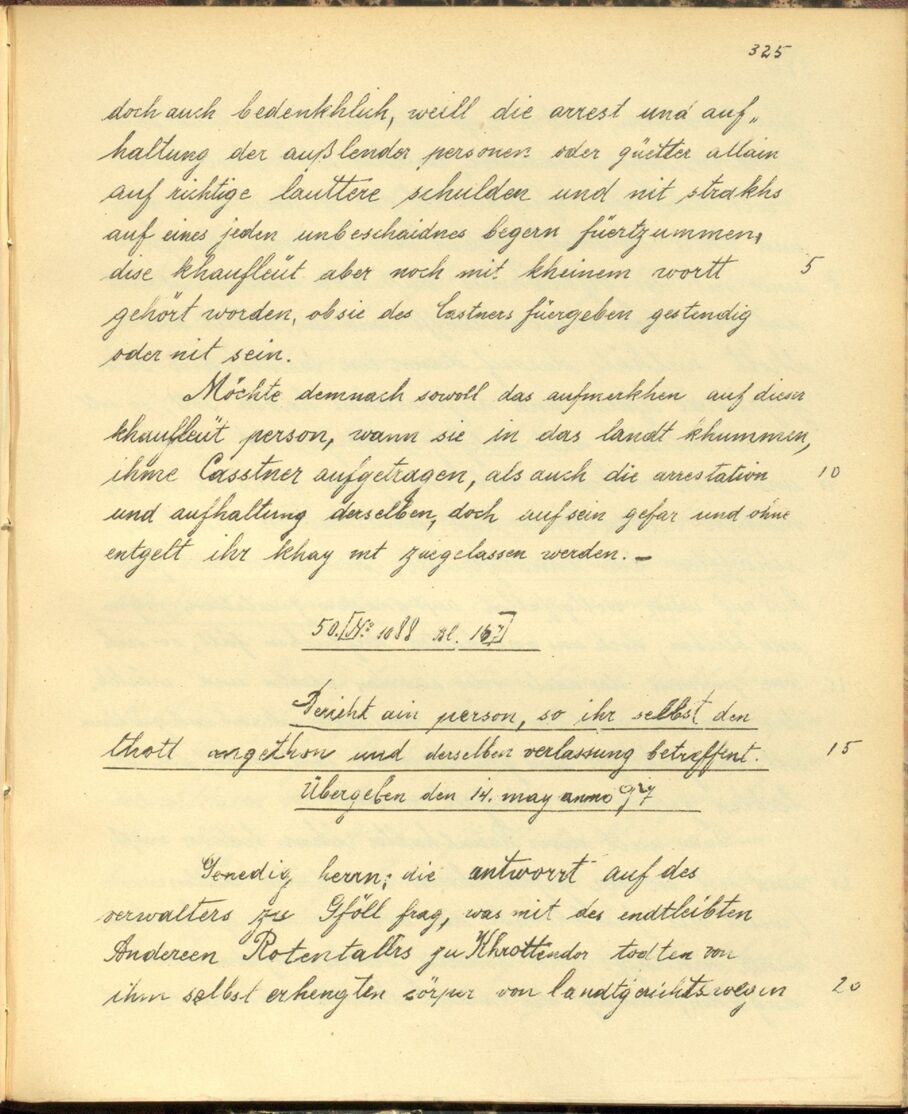 325
doch auch bedenkhlich, weill die arrest und auf„
haltung der außlender personen oder güetter allain
auf richtige lauttere schulden und nit strakhs
auf eines jeden unbeschaidnes begern füertzummen,
dise khaufleüt aber noch mit kheinem wortt 5
gehört worden, ob sie des Castners füergeben gestendig
oder nit sein.
Möchte demnach sowoll das aufmerkhen auf dieser
khaufleüt person, wann sie in das landt khummen,
ihme Casstner aufgetragen, als auch die arrestation 10
und aufhaltung derselben, doch auf sein gefar und ohne
entgelt ihr khay mt zuegelassen werden. –
50. [No 1088 Bl. 167]
Bericht ain person, so ihr selbst den
thott angethon und derselben verlassung betreffent. 15
Übergeben den 14. may anno 97
Genedig herrn; die antwortt auf des
verwalters zu Gföll frag, was mit des endtleibten
Andereen Rotentallrs zu Khrottendor todten von
ihm selbst erhengten cörper von landtgerichts wegen 20